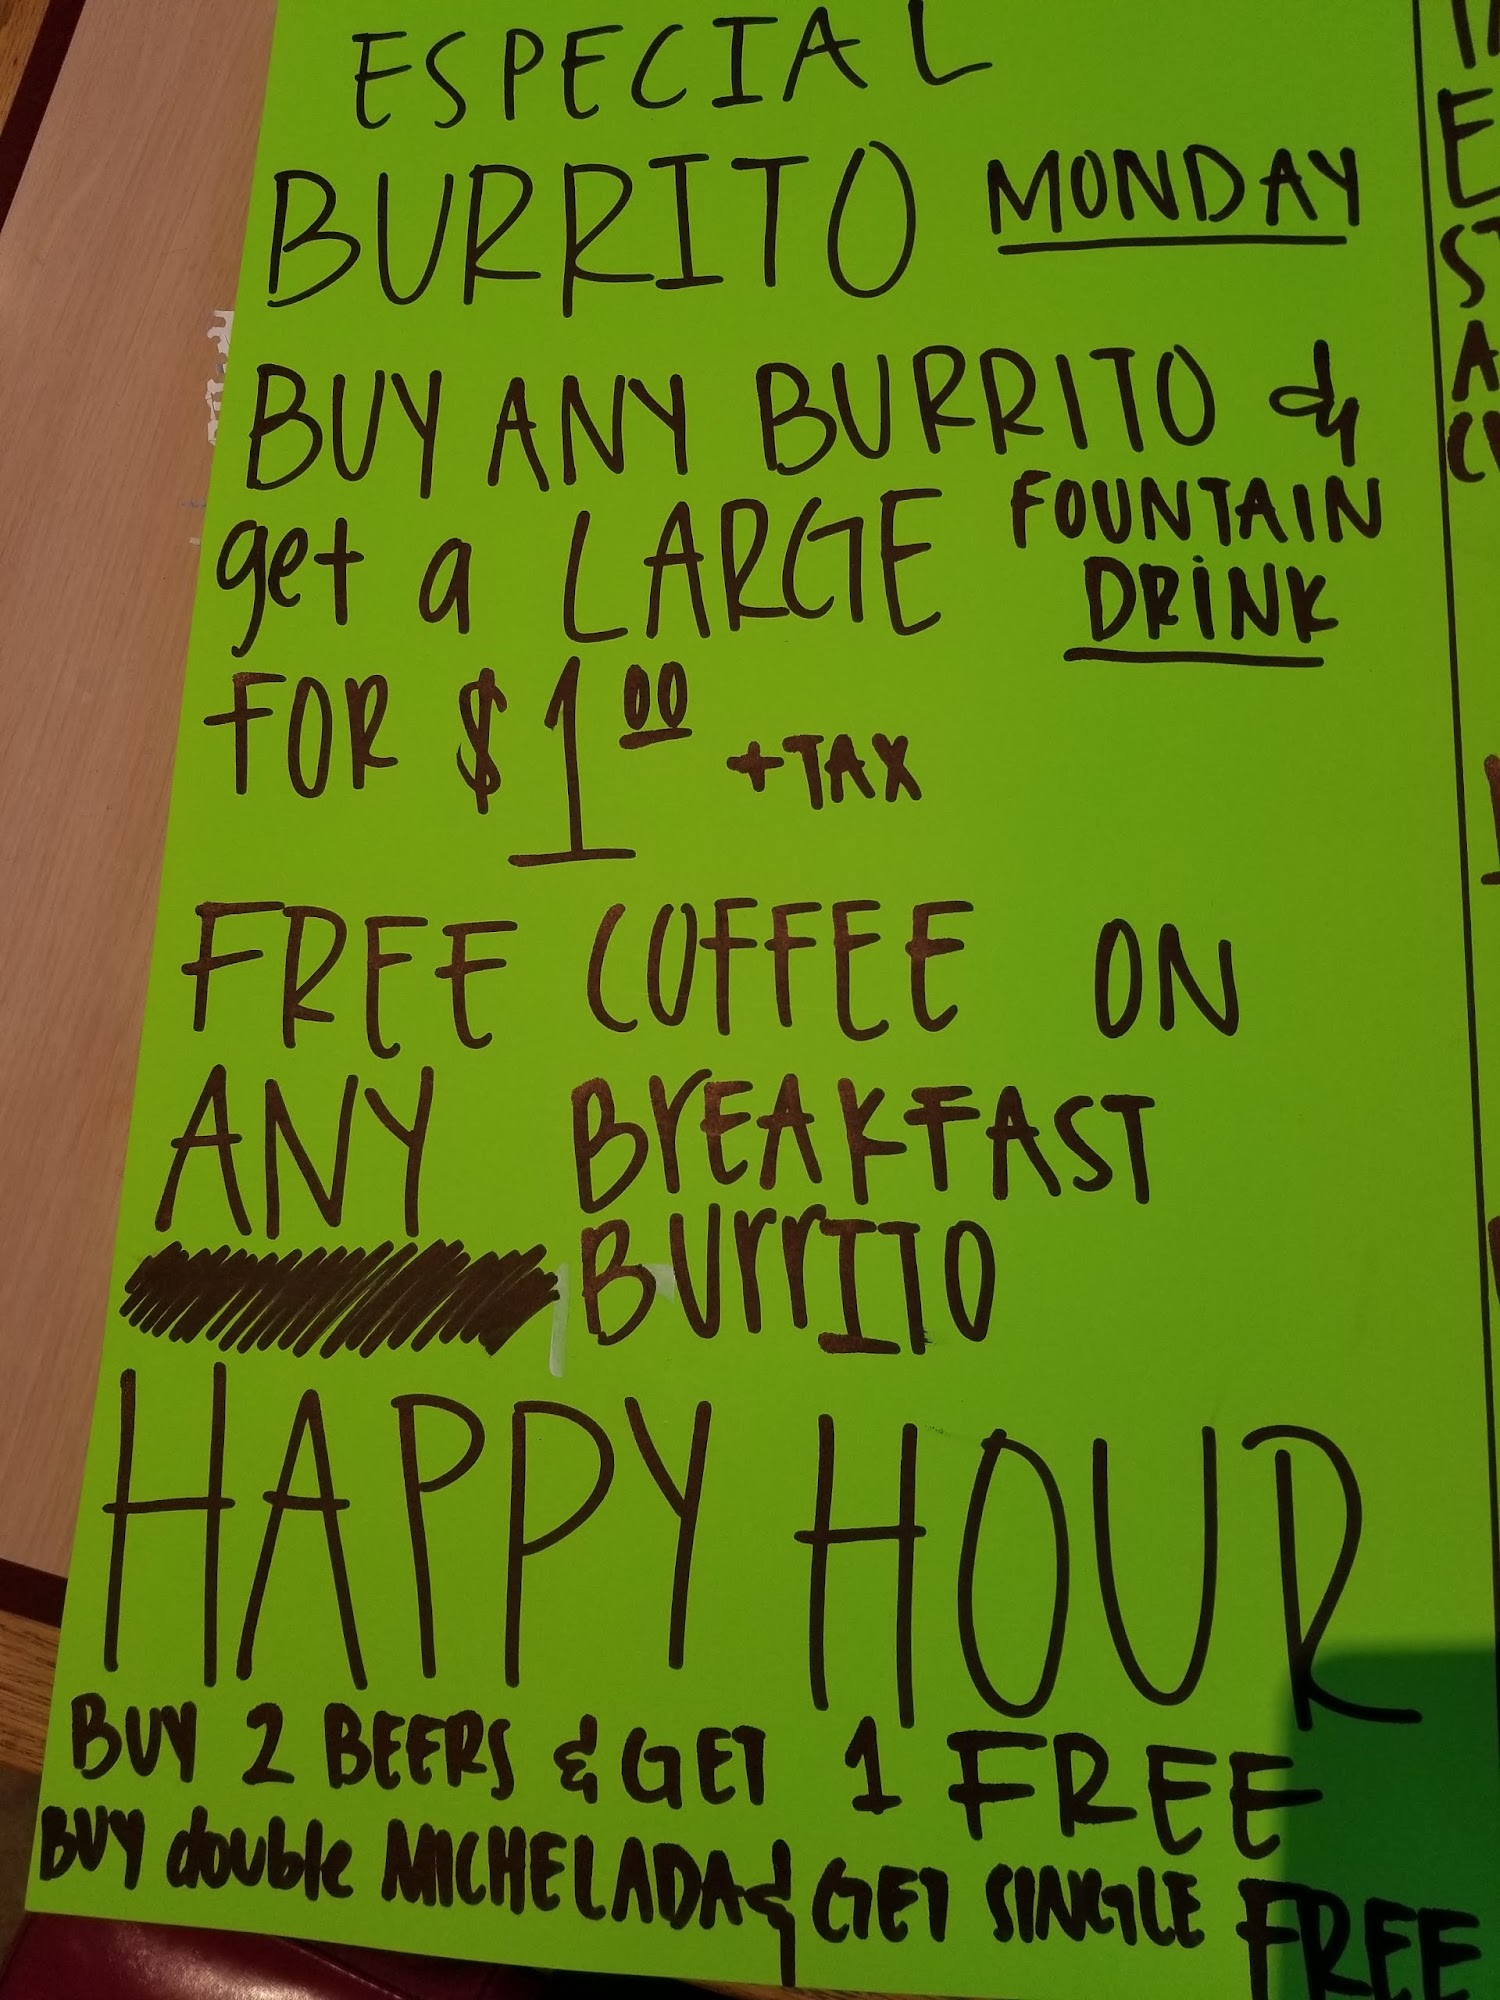 ESPECIAL
BURRITO MONDAY
BUY ANY BURRITO &
get a LARGE FOUNTAIN
DRINK
FOR $1.00 +TAX
FREE COFFEE ON
ANY BrEAKFAST
BUrrITO
HAPPY HOUR
BUY 2 BEERS & GET 1 FREE
BUY double MICHELADA & GET SINGLE FREE